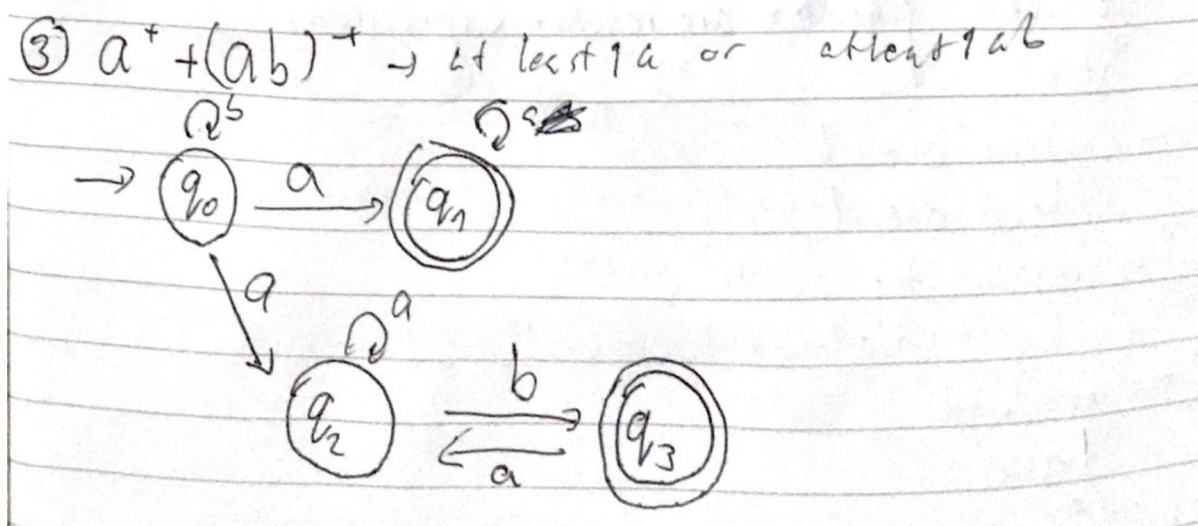 ③ a⁺ +(ab)⁺ → at least 1 a or atleast 1 ab
b a
→ q₀ a q₁
a a
q₂ b q₃
a